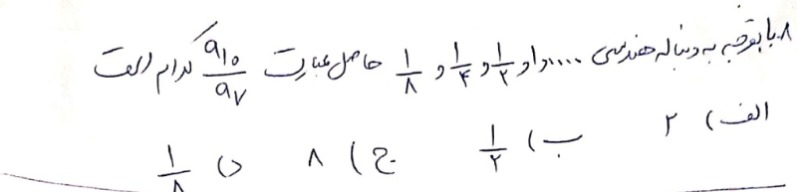 ۸. با توجه به دنباله هندسی .... و ۱ و ۱/۲ و ۱/۴ و ۱/۸ حاصل عبارت a۱۰/a۷ کدام است
الف) ۲ ب) ۱/۲ ج) ۸ د) ۱/۸